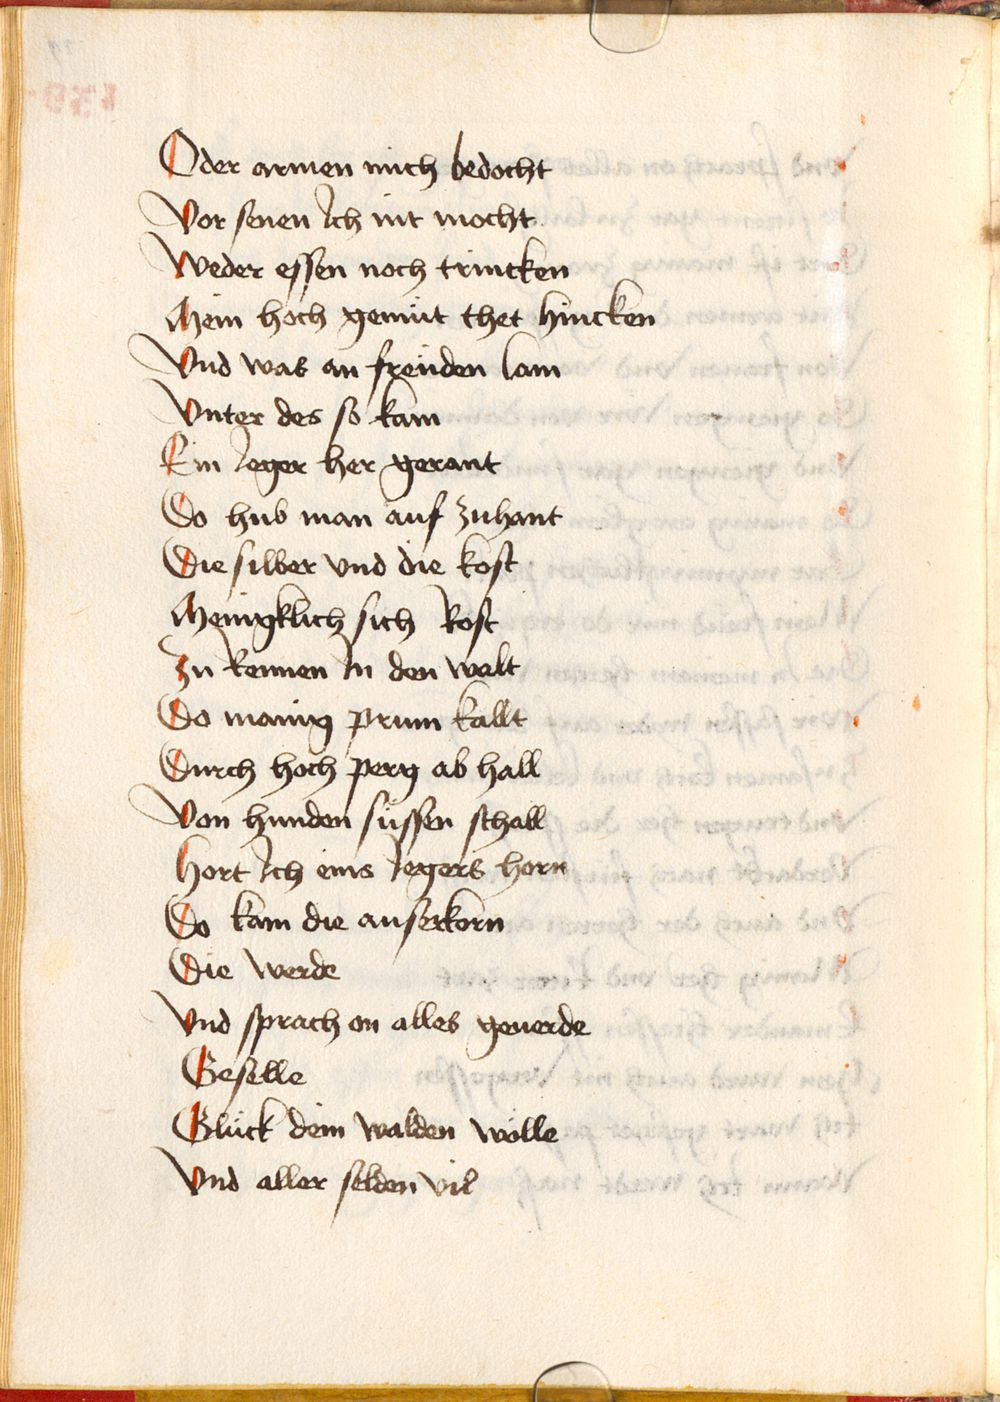 Oder armen mich bedocht
Vor senen Ich nit mocht
Weder essen noch trincken
Mein hoch gemüt thet hincken
Vnd was an freüden lam
Vnter des so kam
Ein Jeger her gerant
Do hub man auf zuhant
Die silber vnd die kost
Menigklich sich Rost
Zu Rennen In den walt
Do manig prun kallt
Durch hoch perg ab hall
Von hunden süssen schall
Hort Ich eins Jegers horn
Do kam die auserkorn
Die werde
Vnd sprach on alles geuerde
Geselle
Glück dein walden wölle
Vnd aller selden vil